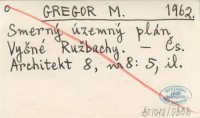 GREGOR M. 1962.
Smerný územný plán
Vyšné Ružbachy. - Čs.
Architekt 8, no 8: 5, il.